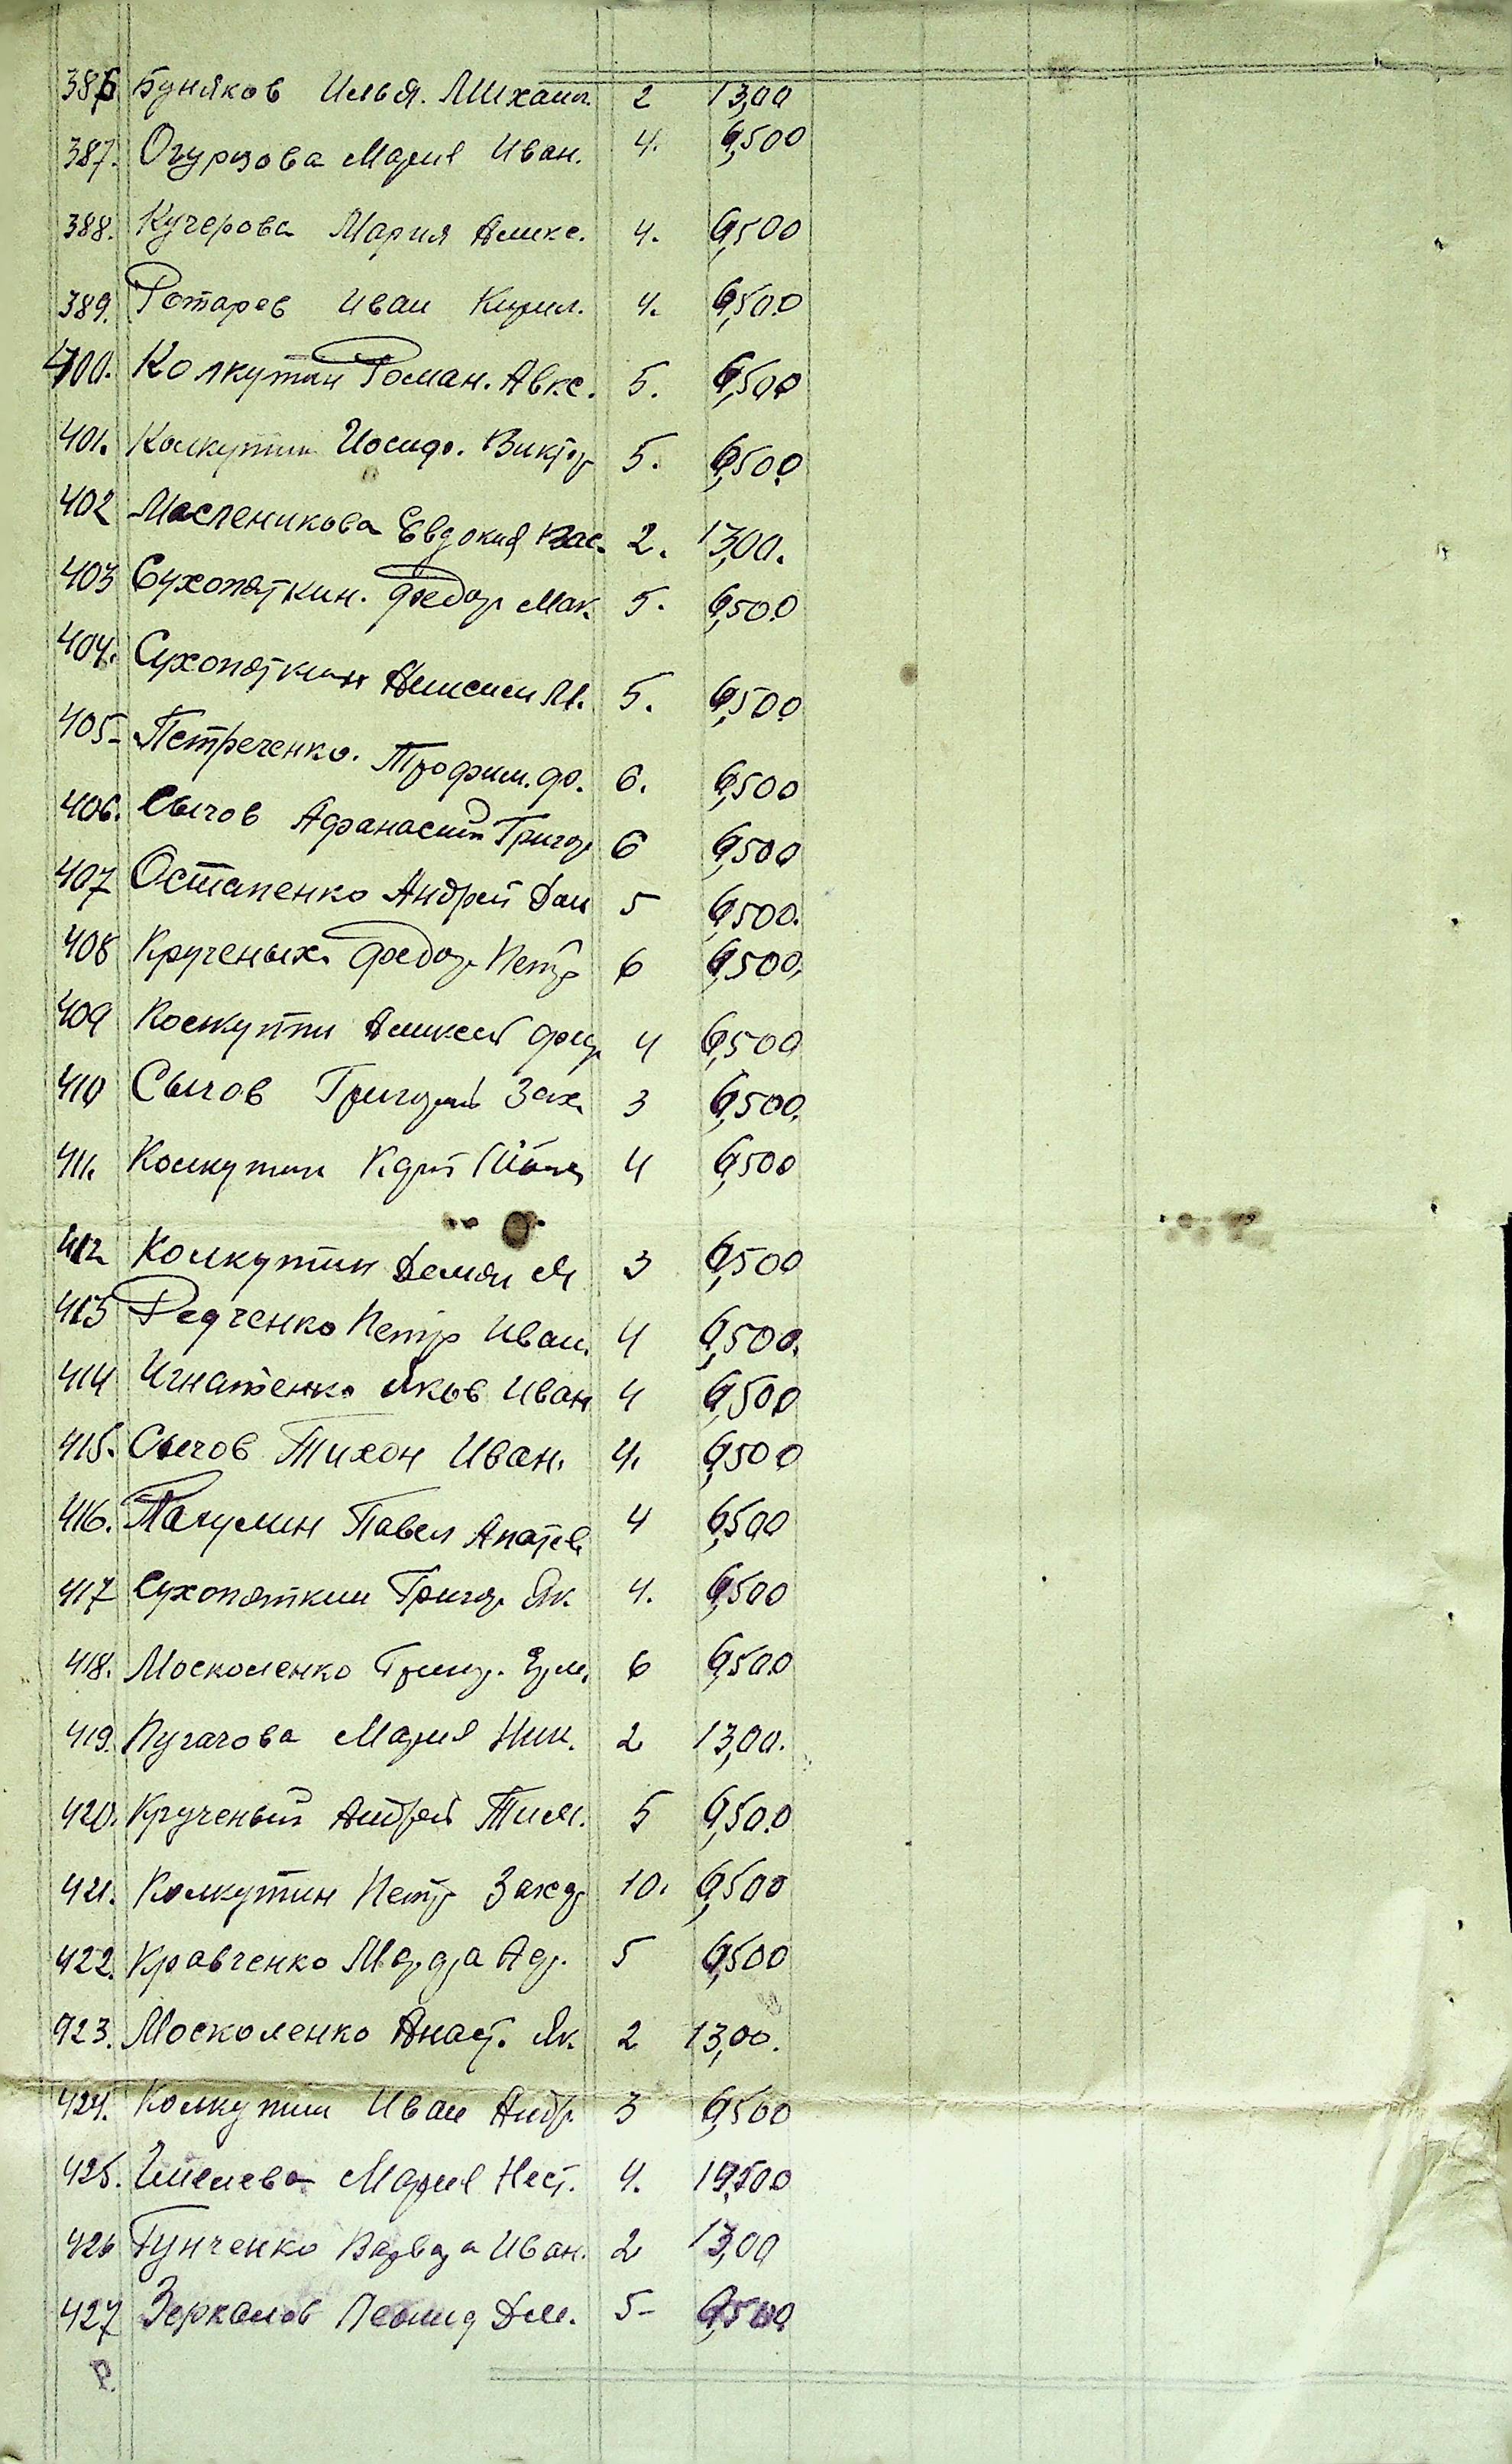 386 Буняков Илья. Михаил. 2 13,00
387. Огурзова Мария Иван. 4. 6,500
388. Кучерова Мария Алекс. 4. 6,500
389. Ротарев Иван Кирил. 4. 6,500
400. Колкутин Роман. Авкс. 5. 6,500
401. Колкутин Иосиф. Виктор 5. 6,500
402 Масленикова Евдокия Вас. 2. 13,00.
403 Сухопяткин. Федор Мак. 5. 6,500
404. Сухопяткин М. 5. 6,500
405- Петреченко. Трофим. ф. 6. 6,500
406. Сычов Афанасий Григор 6 6,500
407 Остапенко Андрей Дан 5 6,500.
408 Крученых. Федор Петр 6 6,500.
409 Колкутин Алексей 4 6,500
410 Сычов Григорий Зах. 3 6,500.
411. Колкутин 4 6,500
412 Колкутин Демян М 3 6,500
413 Редченко Петр Иван. 4 6,500.
414 Игнатенко Яков Иван 4 6,500
415. Сычов Тихон Иван. 4. 6,500
416. Павел 4 6,500
417 Сухопяткин Григор Як. 4. 6,500
418. Москоленко Григор. 6 6,500
419. Пугачова Мария Ник. 2 13,00.
420. Крученый Андрей Тим. 5 6,500
421. Колкутин Петр Захар 10. 6,500
422. Кравченко 5 6,500
423. Москоленко Анаст. Як. 2 13,00.
424. Колкутин Иван Андр. 3 6,500
425. Мария Нест. 4. 19,500
426 Гунченко Варвара Иван. 2 13,00
427 Зеркалов Леонид Дм. 5- 6,500
Р.